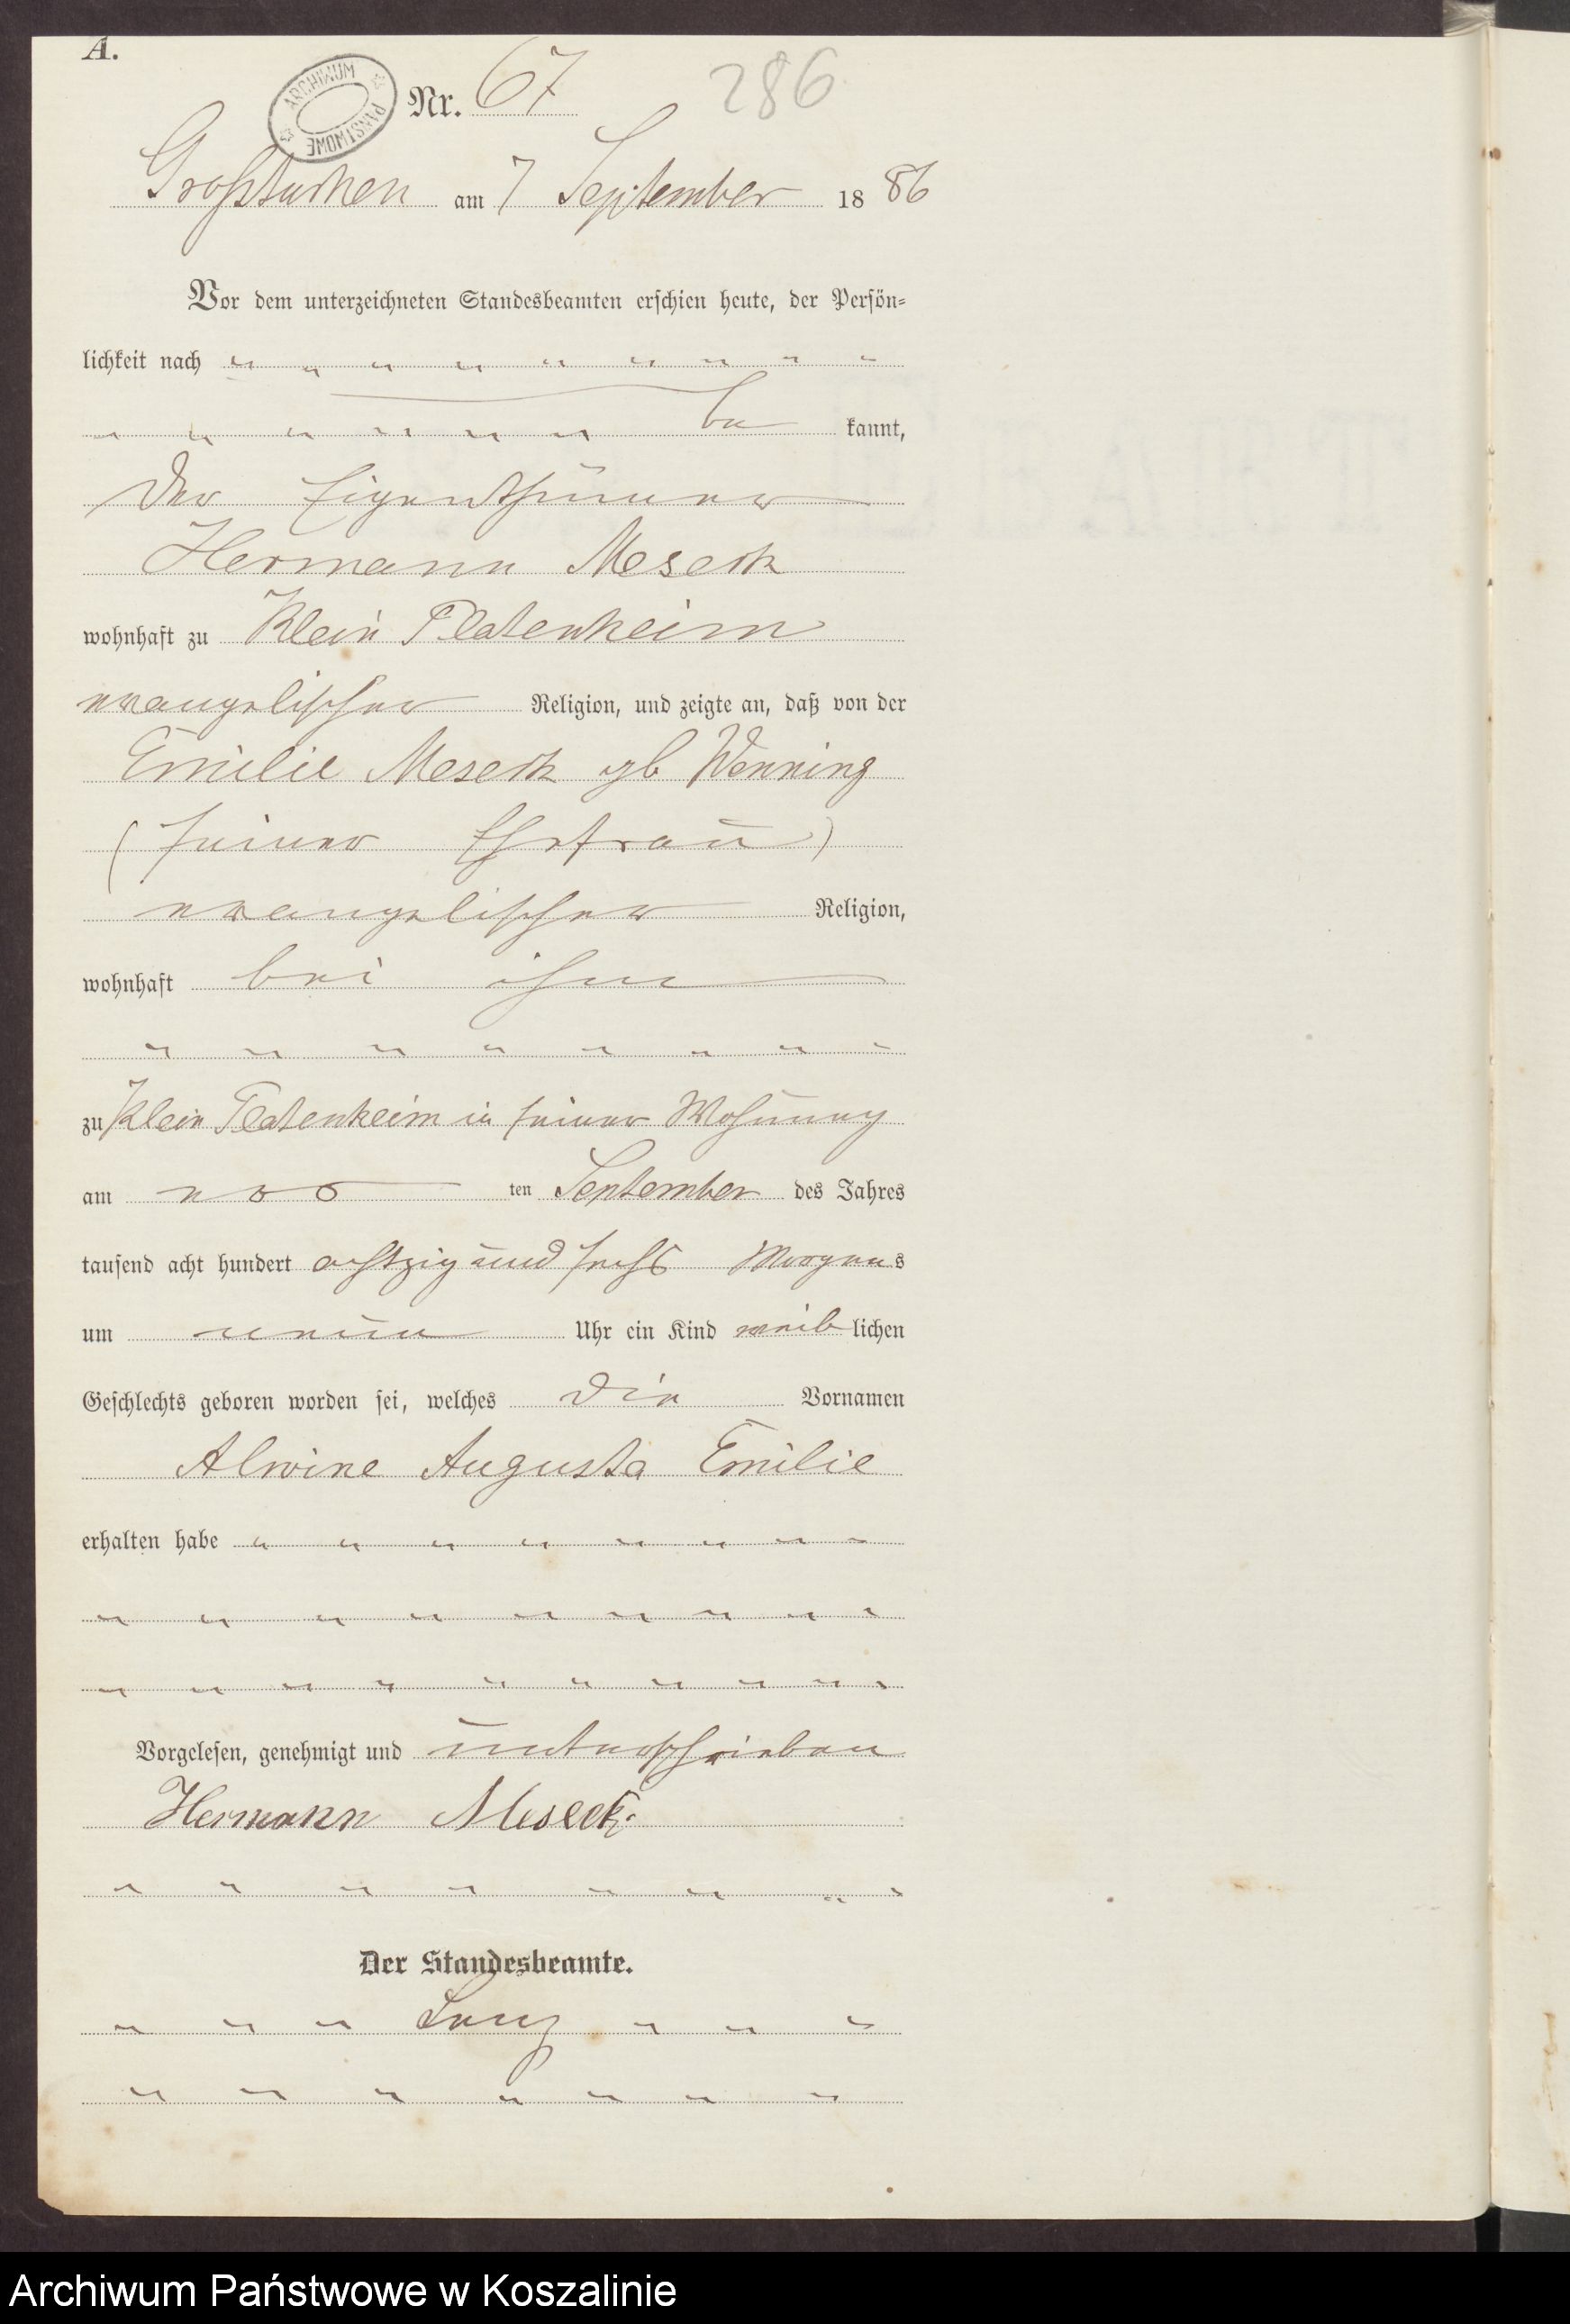 A.
ARCHIWUM PAŃSTWOWE
Nr. 67 286
Großtuchen am 7 September 1886
Vor dem unterzeichneten Standesbeamten erschien heute, der Persön-
lichkeit nach " " " " " " " " "
" " " " " " be kannt,
der Eigenthümer
Hermann Meseck
wohnhaft zu Klein Platenheim
evangelischer Religion, und zeigte an, daß von der
Emilie Meseck geb Wenning
(seiner Ehefrau)
evangelischer Religion,
wohnhaft bei ihm
" " " " " " " "
zu Klein Platenheim in seiner Wohnung
am ten September des Jahres
tausend acht hundert achtzig und sechs Morgens
um neun Uhr ein Kind weiblichen
Geschlechts geboren worden sei, welches die Vornamen
Alwine Augusta Emilie
erhalten habe " " " " " " " "
" " " " " " " " "
" " " " " " " " " "
Vorgelesen, genehmigt und unterschrieben
Hermann Meseck.
" " " " " " " "
Der Standesbeamte.
" " " " " "
" " " " " " "
Archiwum Państwowe w Koszalinie